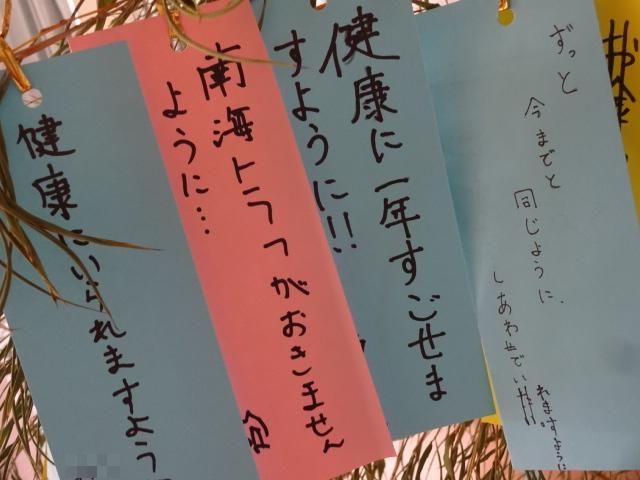 ずっと
今までと
同じように、
しあわせでい
れますように
健康に一年すごせま
すように!!
南海トラフがおきません
ように…
健康にいられますよう